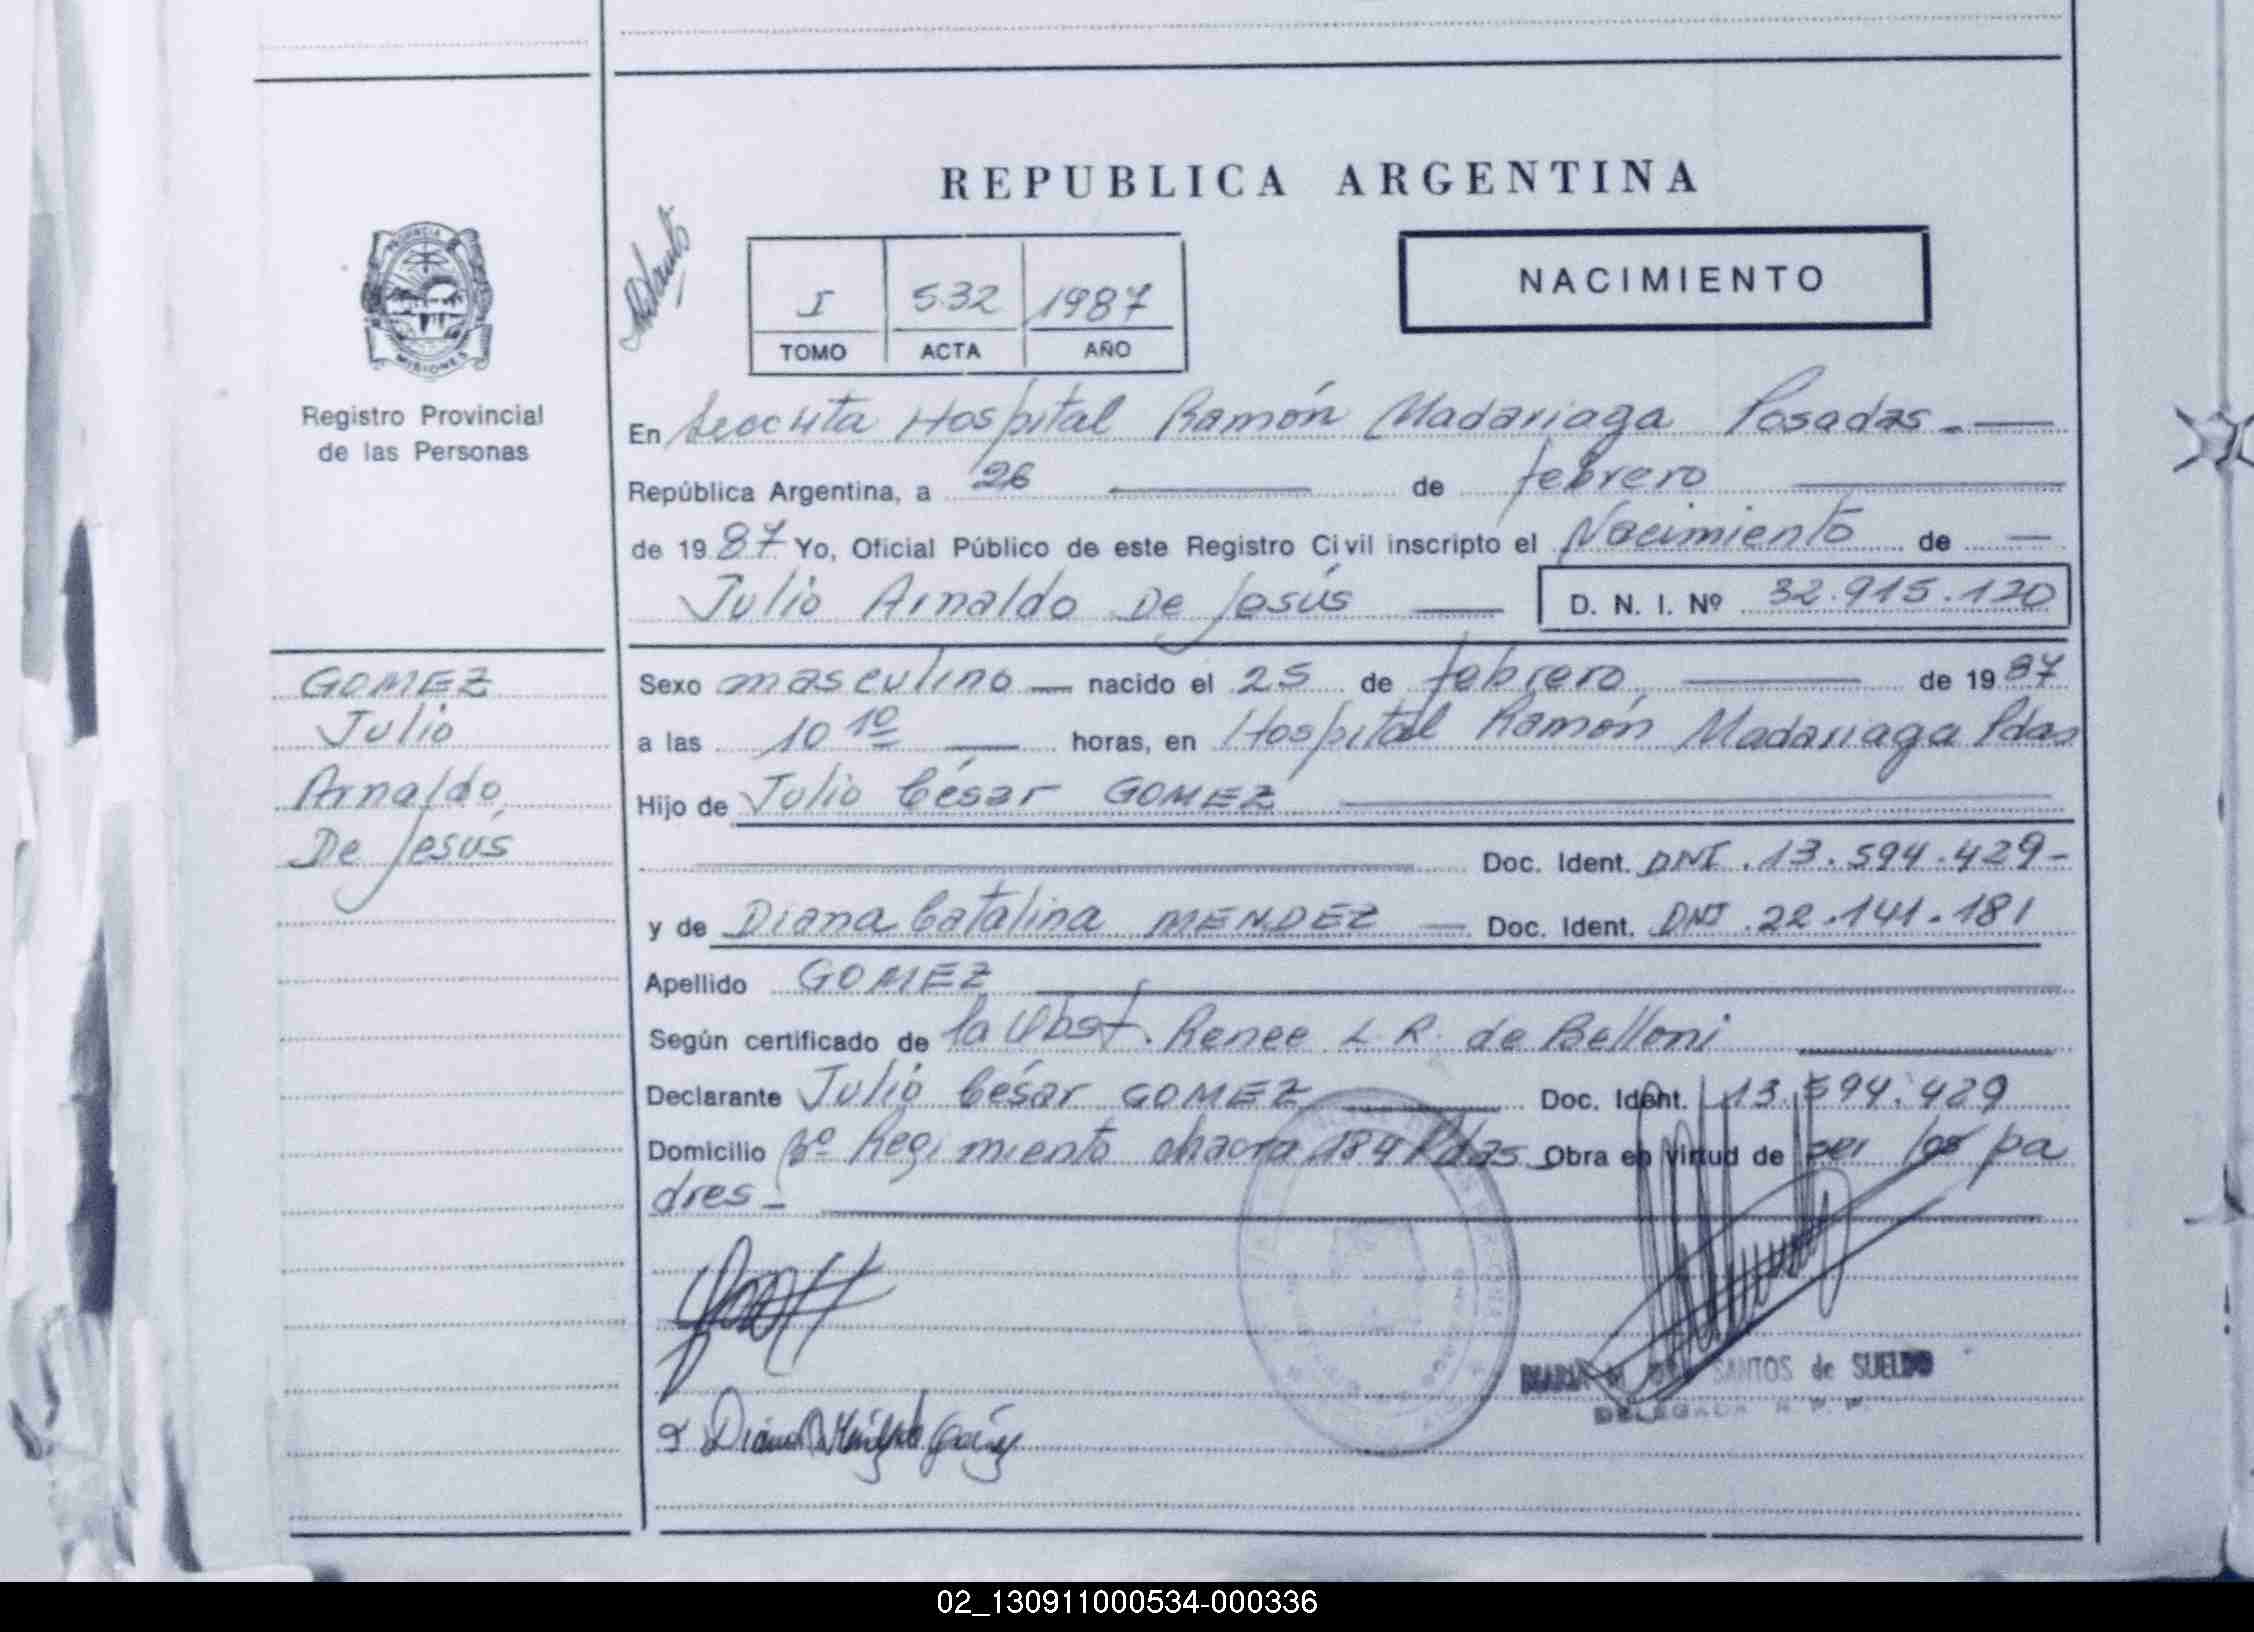 REPUBLICA ARGENTINA
PROVINCIA
MISIONES
Registro Provincial
de las Personas
I 532 1987
TOMO ACTA AÑO
NACIMIENTO
En Hospital Ramón Madariaga Posadas.—
República Argentina, a 26 — de febrero —
de 1987 Yo, Oficial Público de este Registro Civil inscripto el Nacimiento de —
Julio Arnaldo De Jesús — D. N. I. Nº 32.915.120
GOMEZ
Julio
Arnaldo
De Jesús
Sexo masculino — nacido el 25 de febrero — de 1987
a las 10 10 — horas, en Hospital Ramón Madariaga Pdas
Hijo de Julio César GOMEZ —
— Doc. Ident. DNI .13.594.429-
y de Diana Catalina MENDEZ — Doc. Ident. DNI .22.141.181
Apellido GOMEZ —
Según certificado de la Obst. Renee L R. de Belloni —
Declarante Julio César GOMEZ — Doc. Ident. 13.594.429
Domicilio Regimiento chacra 184 Pdas Obra en virtud de ser los pa
dres —
SANTOS de SUELDO
DELEGADA R. P. P.
02_130911000534-000336